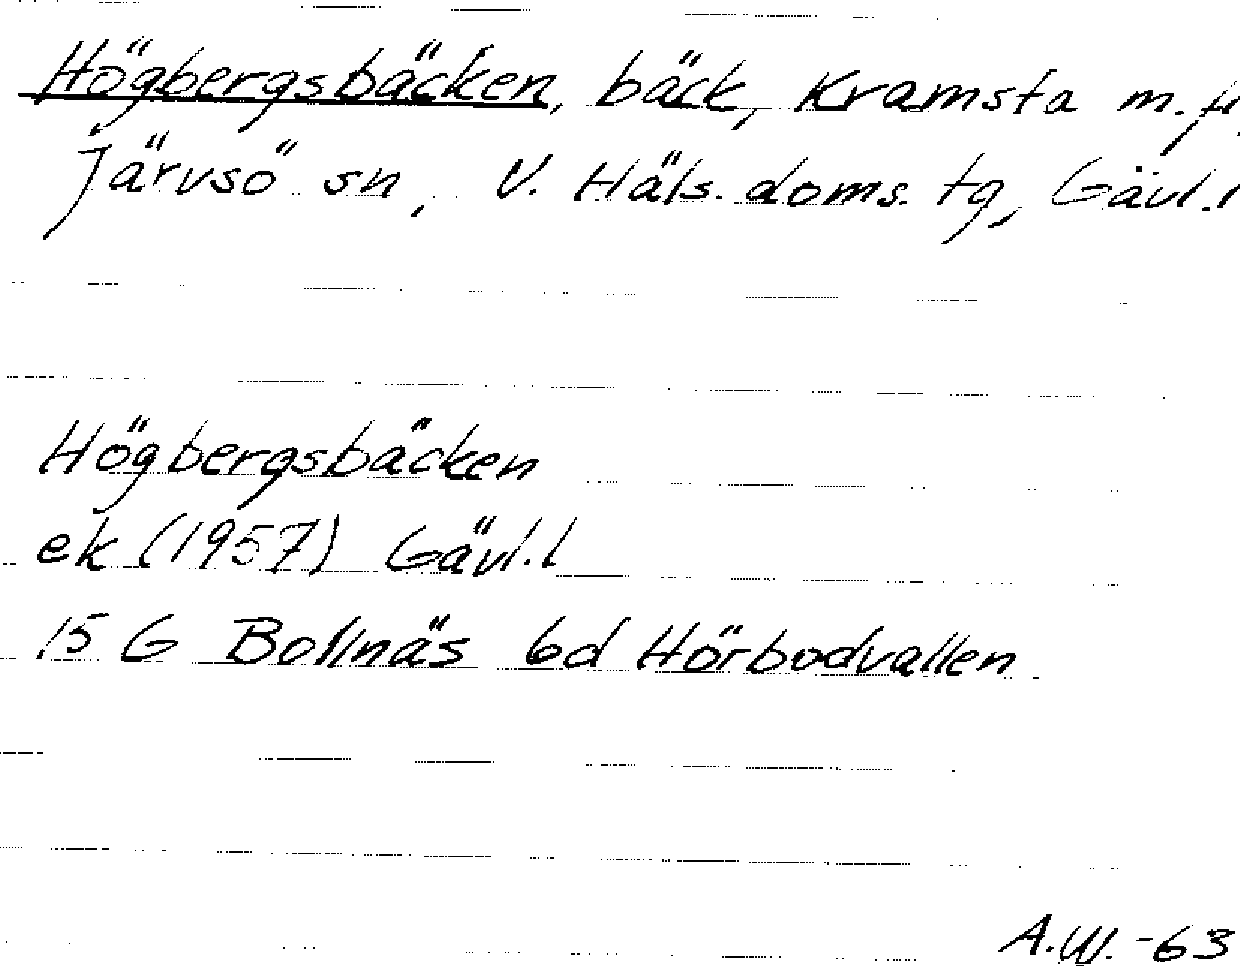 Högbergsbäcken, bäck, Kramsta m.fl,
Järvsö sn, V. Häls. doms. tg, Gävl.l
Högbergsbäcken
ek (1957) Gävl.l
15 G Bollnäs 6d Hörbodvallen
A.W. -63